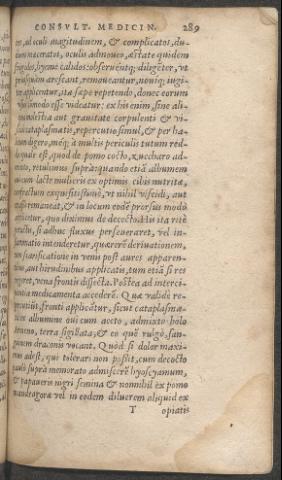 CONSVLT. MEDICIN. 289
ad oculi magitudinem, & complicatos, du-
maceratos, oculis admoueo, æstate quidem
frigidos, hyeme calidos: obseruẽntq; diligẽter, vt
arescant, remoueantur, nouiq; iugi-
applicentur, ita sæpe repetendo, donec eorum
esse videatur: ex his enim, sine ali-
molestia aut grauitate corpulenti & vi-
cataplasmatis, repercutio simul, & per ha-
digero, meq; à multis periculis tutum red-
quale est, quod de pomo cocto, xuccharo ad-
retulimus suprà: quando etiã albumem
lacte mulieris ex optimis cibis nutritæ,
exquisitissimè, vt nihil viscidi, aut
remaneat, & in locum eodẽ prorsus modo
quo diximus de decocto. His ita ritè
si adhuc fluxus perseueraret, vel in-
intenderetur, quærerẽ deriuationem,
scarificatione in venis post aures apparen-
aut hirudinibus applicatis, tum etiã si res
vena frontis dissecta. Postea ad interci-
medicamenta accederẽ. Quæ validè re-
fronti applicãtur, sicut cataplasma
albumine oui cum aceto, admixto bolo
armeno, terra sigillata, & eo quẽ vulgò, san-
guinem draconis vocant. Quòd si dolor maxi-
mus adest, qui tolerari non possit, cum decocto
paulò suprà memorato admiscerẽ hyoscyamum,
& papaueris nigri semina & nonnihil ex pomo
mandragoræ vel in eodem diluerem aliquid ex
T opiatis